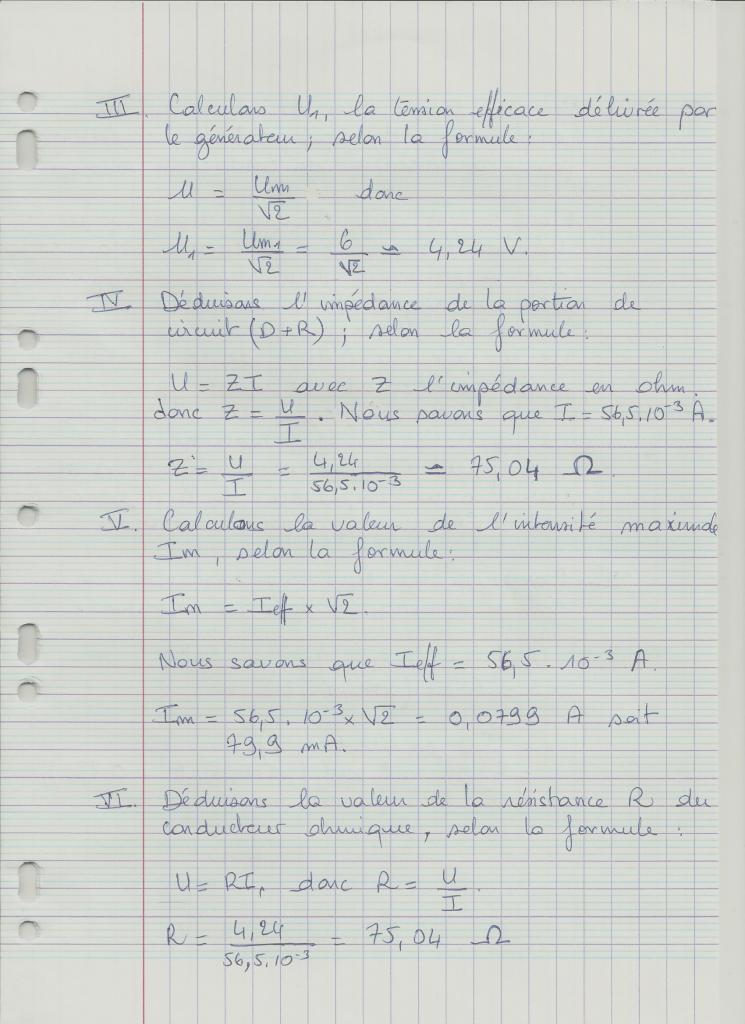 III. Calculons U1, la tension efficace délivrée par
le générateur ; selon la formule :
U = Um/√2 donc
U1 = Um1/√2 = 6/√2 ≃ 4,24 V.
IV. Déduisons l'impédance de la portion de
circuit (D+R) ; selon la formule :
U = ZI avec Z l'impédance en ohm.
donc Z = U/I. Nous savons que I = 56,5.10⁻³ A.
Z = U/I = 4,24/56,5.10⁻³ ≃ 75,04 Ω.
V. Calculons la valeur de l'intensité maximale
Im, selon la formule :
Im = Ieff × √2.
Nous savons que Ieff = 56,5.10⁻³ A.
Im = 56,5.10⁻³ × √2 = 0,0799 A soit
79,9 mA.
VI. Déduisons la valeur de la résistance R du
conducteur ohmique, selon la formule :
U = RI, donc R = U/I.
R = 4,24/56,5.10⁻³ = 75,04 Ω